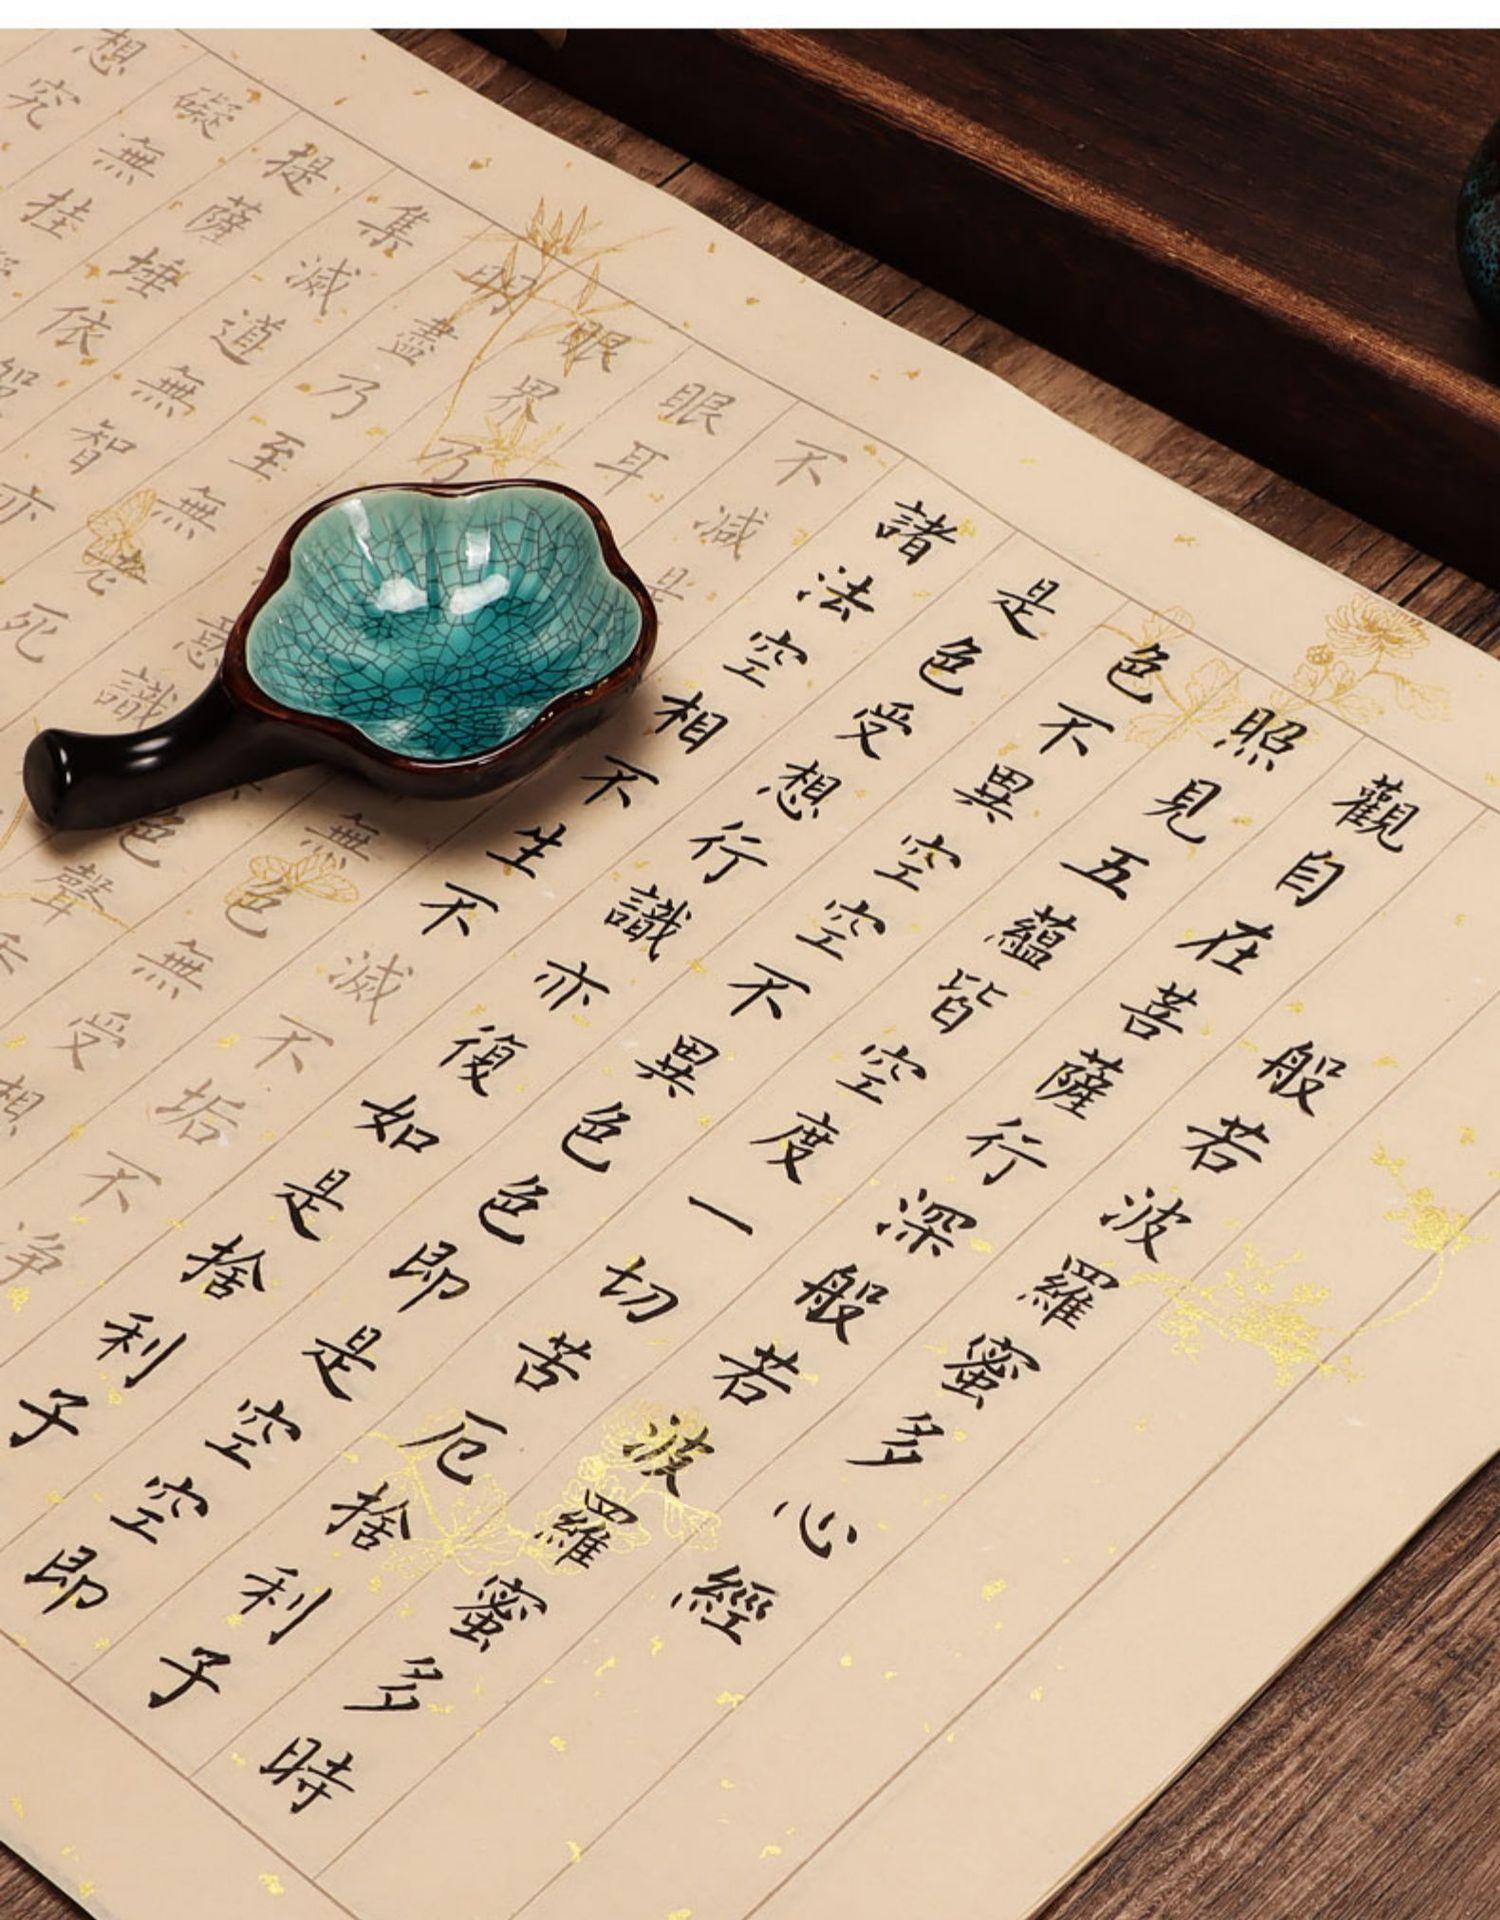 般若波羅蜜多心經
觀自在菩薩行深般若波羅蜜多時
照見五蘊皆空度一切苦厄捨利子
色不異空空不異色色即是空空即
是色受想行識亦復如是捨利子
諸法空相不生不滅不垢不淨
不減無色無受想
眼耳色聲
眼界乃意識
明盡乃至無老死
集滅道無智亦
提薩埵依
礙無挂
想究